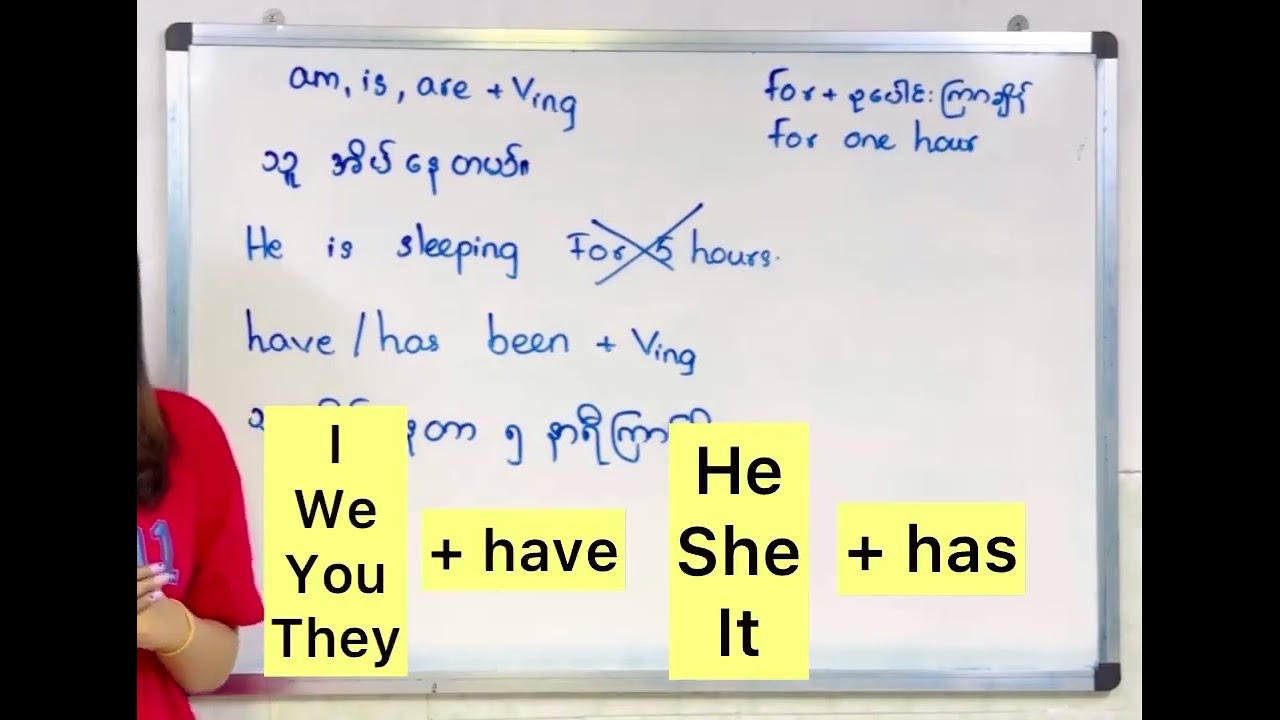 am, is, are + Ving
for + စုပေါင်းကြာချိန်
for one hour
သူ အိပ် နေ တယ်။
He is sleeping For 5 hours.
have / has been + Ving
တာ ၅ နာရီကြာ
I
We
You
They
+ have
He
She
It
+ has